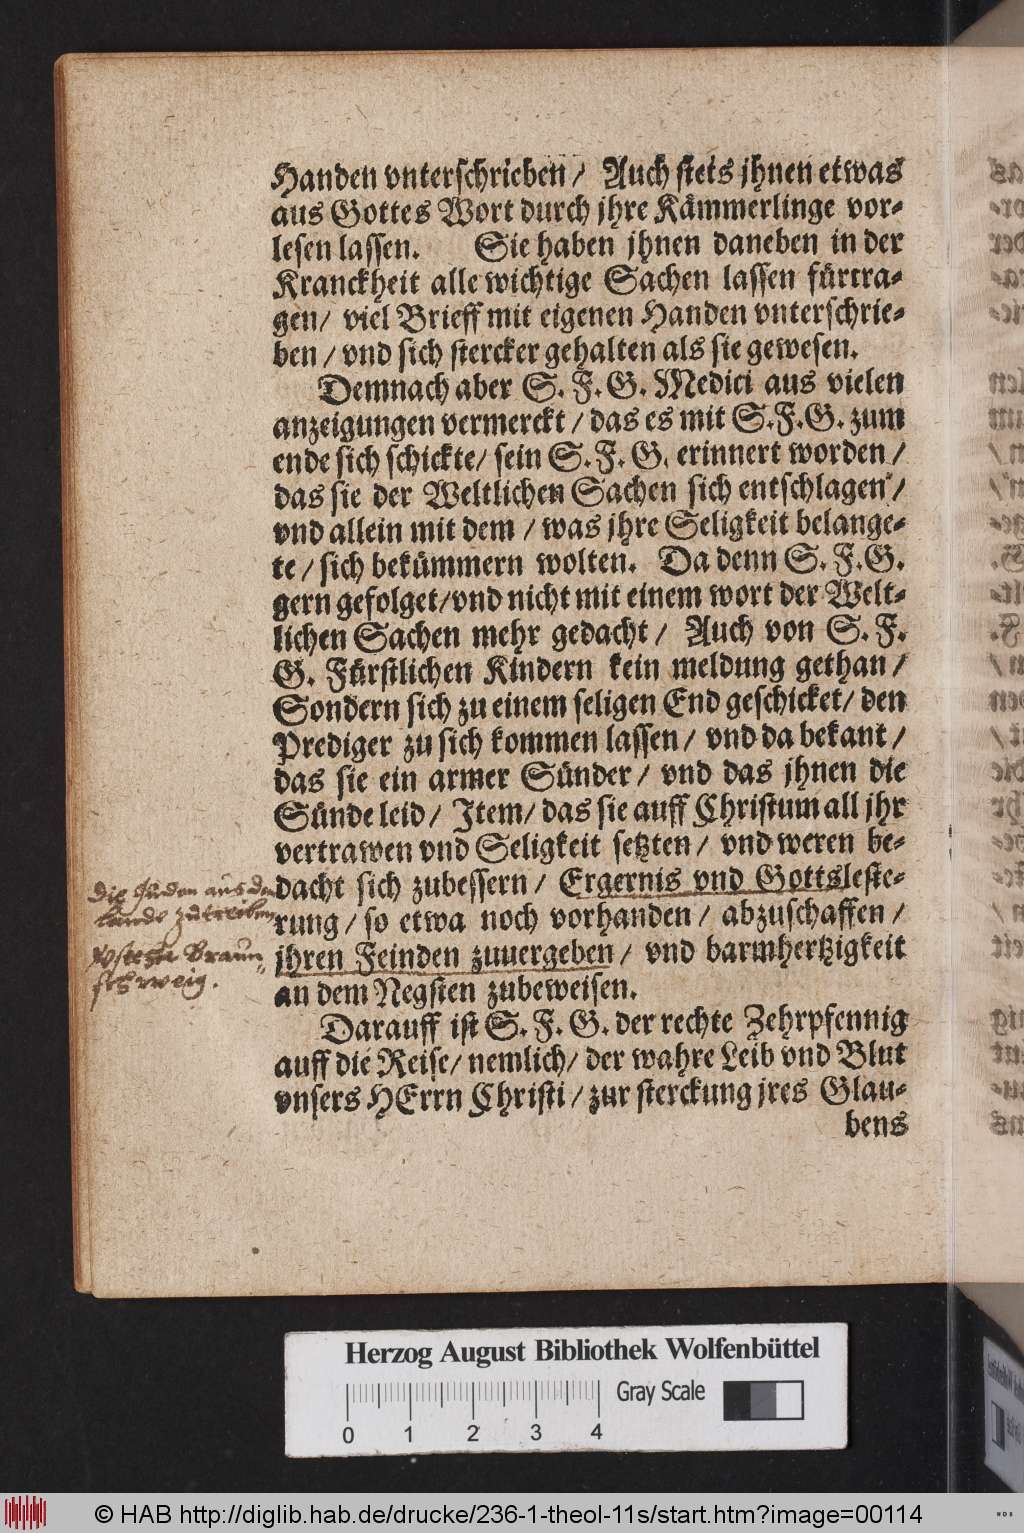 Handen vnterschrieben / Auch stets jhnen etwas
aus Gottes Wort durch jhre Kämmerlinge vor-
lesen lassen. Sie haben jhnen daneben in der
Kranckheit alle wichtige Sachen lassen fürtra-
gen / viel Brieff mit eigenen Handen vnterschrie-
ben / vnd sich stercker gehalten als sie gewesen.
Demnach aber S. F. G. Medici aus vielen
anzeigungen vermerckt / das es mit S. F. G. zum
ende sich schickte / sein S. F. G. erinnert worden /
das sie der Weltlichen Sachen sich entschlagen /
vnd allein mit dem / was jhre Seligkeit belange-
te / sich bekümmern wolten. Da denn S. F. G.
gern gefolget / vnd nicht mit einem wort der Welt-
lichen Sachen mehr gedacht / Auch von S. F.
G. Fürstlichen Kindern kein meldung gethan /
Sondern sich zu einem seligen End geschicket / den
Prediger zu sich kommen lassen / vnd da bekant /
das sie ein armer Sünder / vnd das jhnen die
Sünde leid / Item / das sie auff Christum all jhr
vertrawen vnd Seligkeit setzten / vnd weren be-
dacht sich zubessern / Ergernis vnd Gottsleste-
rung / so etwa noch vorhanden / abzuschaffen /
jhren Feinden zuuergeben / vnd barmhertzigkeit
an dem Negsten zubeweisen.
Darauff ist S. F. G. der rechte Zehrpfennig
auff die Reise / nemlich / der wahre Leib vnd Blut
vnsers HErrn Christi / zur sterckung jres Glau-
bens
die Juden aus dem
lande zutreiben
Braun
schweig.
Herzog August Bibliothek Wolfenbüttel
Gray Scale
0 1 2 3 4
© HAB http://diglib.hab.de/drucke/236-1-theol-11s/start.htm?image=00114